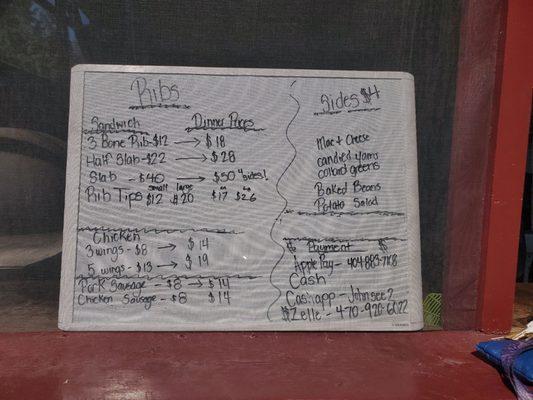 Ribs
Sandwich Dinner Prices
3 Bone Rib-$12 → $18
Half Slab-$22 → $28
Slab - $40 → $50 4 sides!
small large
Rib Tips $12 $20 $17 $26
Chicken
3 wings - $8 → $14
5 wings - $13 → $19
Pork Sausage - $8 → $14
Chicken Sausage - $8 $14
Sides $4
Mac + Cheese
candied yams
collard greens
Baked Beans
Potato Salad
$ Payment $
Apple Pay - 404-883-7108
Cash
Cashapp - Johnsee2
Zelle - 470-920-6022